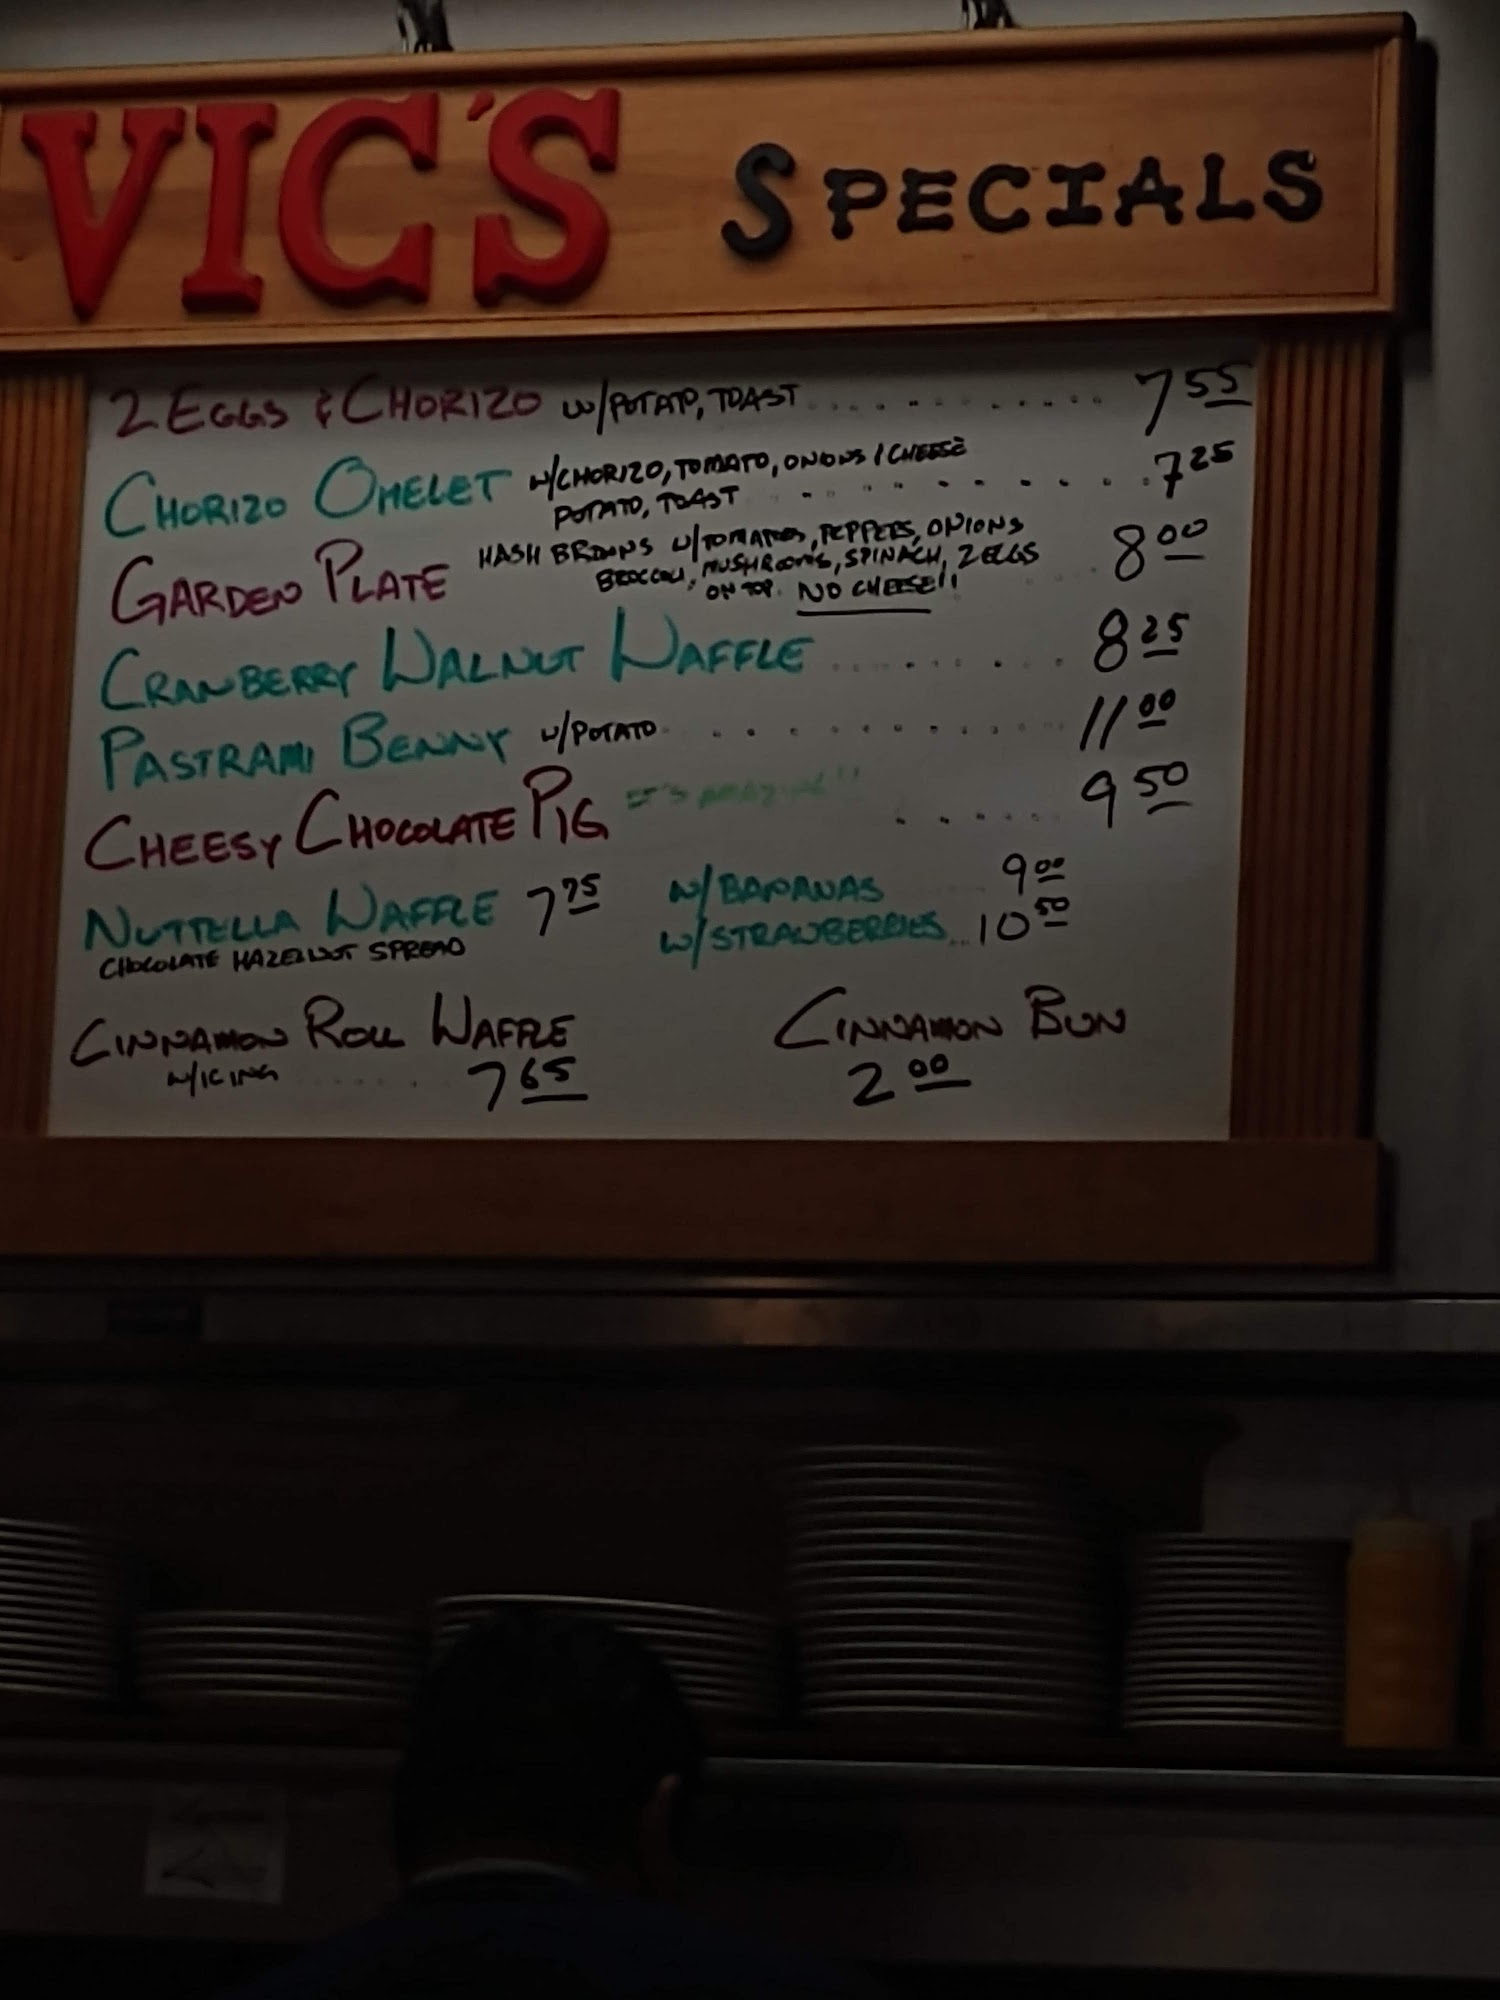 VIC'S SPECIALS
2 EGGS & CHORIZO W/POTATO, TOAST .......... 7 55
CHORIZO OMELET W/CHORIZO, TOMATO, ONIONS / CHEESE
POTATO, TOAST .......... 7 25
GARDEN PLATE HASH BROWNS W/TOMATOES, PEPPERS, ONIONS
BROCCOLI, MUSHROOMS, SPINACH, 2 EGGS
ON TOP. NO CHEESE!! 8 00
CRANBERRY WALNUT WAFFLE ....... 8 25
PASTRAMI BENNY W/POTATO .......... 11 00
CHEESY CHOCOLATE PIG IT'S AMAZING!! ...... 9 50
NUTTELLA WAFFLE 7 75 W/BANANAS 9 00
CHOCOLATE HAZELNUT SPREAD W/STRAWBERRIES... 10 50
CINNAMON ROLL WAFFLE
W/ICING ...... 7 65
CINNAMON BUN
2 00